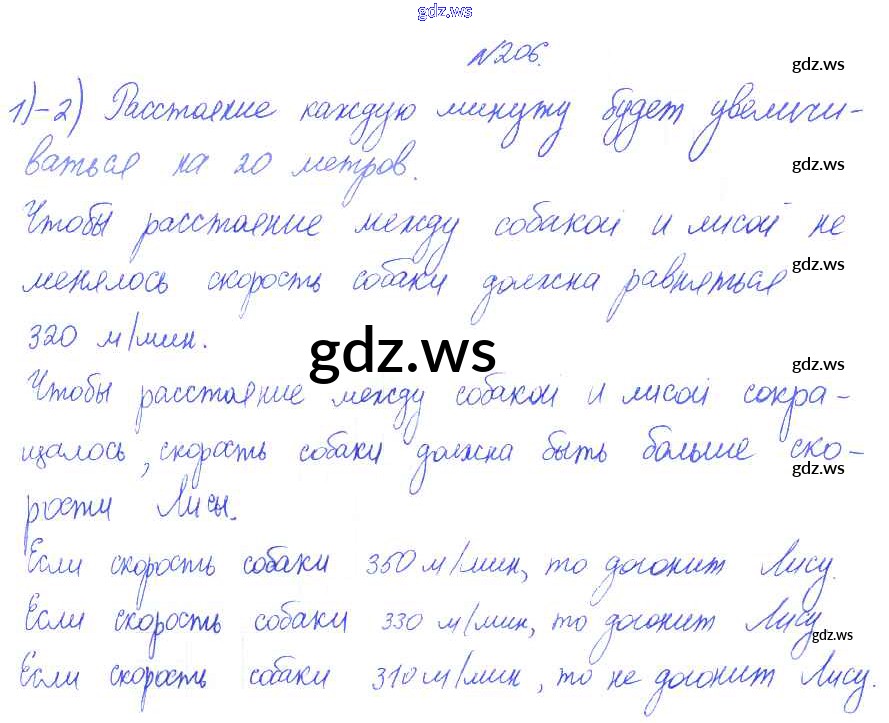 gdz.ws
№206.
gdz.ws
1)-2) Расстояние каждую минуту будет увеличи-
ваться на 20 метров.
gdz.ws
Чтобы расстояние между собакой и лисой не
gdz.ws
менялось скорость собаки должна равняться
320 м/мин.
gdz.ws
gdz.ws
Чтобы расстояние между собакой и лисой сокра-
щалось, скорость собаки должна быть больше ско-
gdz.ws
рости Лисы.
Если скорость собаки 350 м/мин, то догонит Лису.
Если скорость собаки 330 м/мин, то догонит Лису
gdz.ws
Если скорость собаки 310 м/мин, то не догонит Лису.